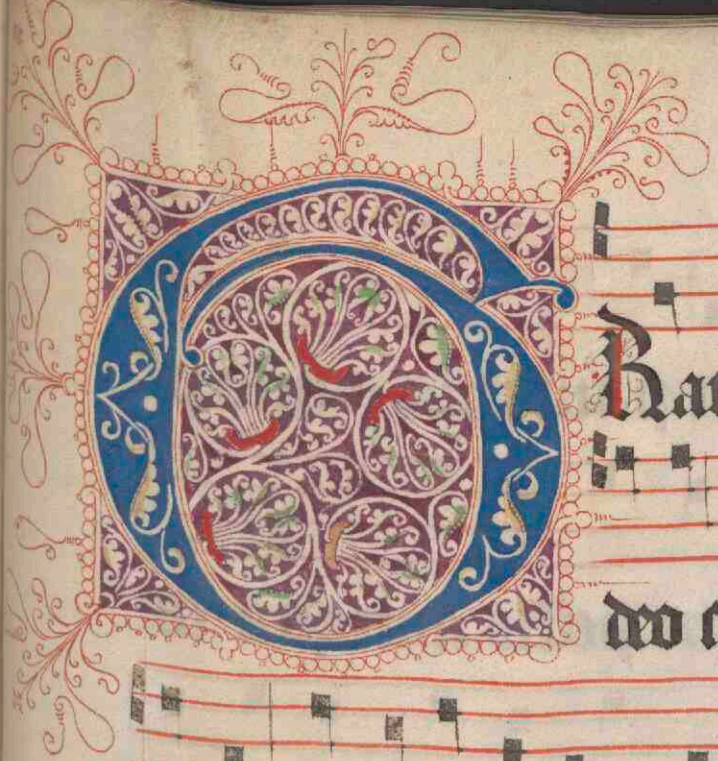 GRa
deo